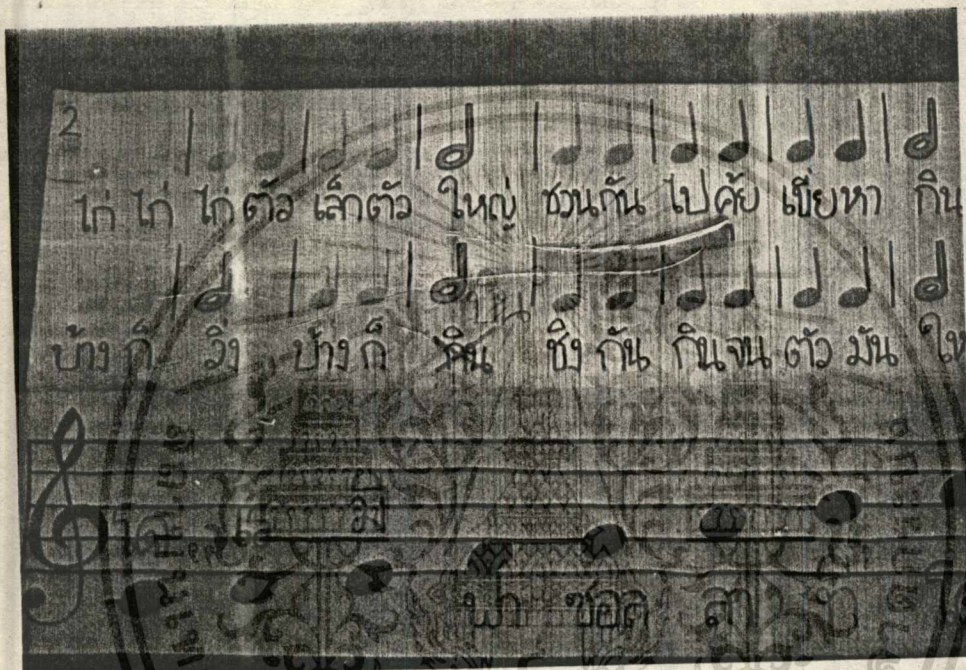 2
ไก่ ไก่ ไก่ ตัว เล็ก ตัว ใหญ่ ชวน กัน ไป คุ้ย เขี่ย หา กิน
บิน
บ้าง ก็ วิ่ง บ้าง ก็ กิน ชิง กัน กิน จน ตัว มัน
โด เร มี
ฟา ซอล ลา ที